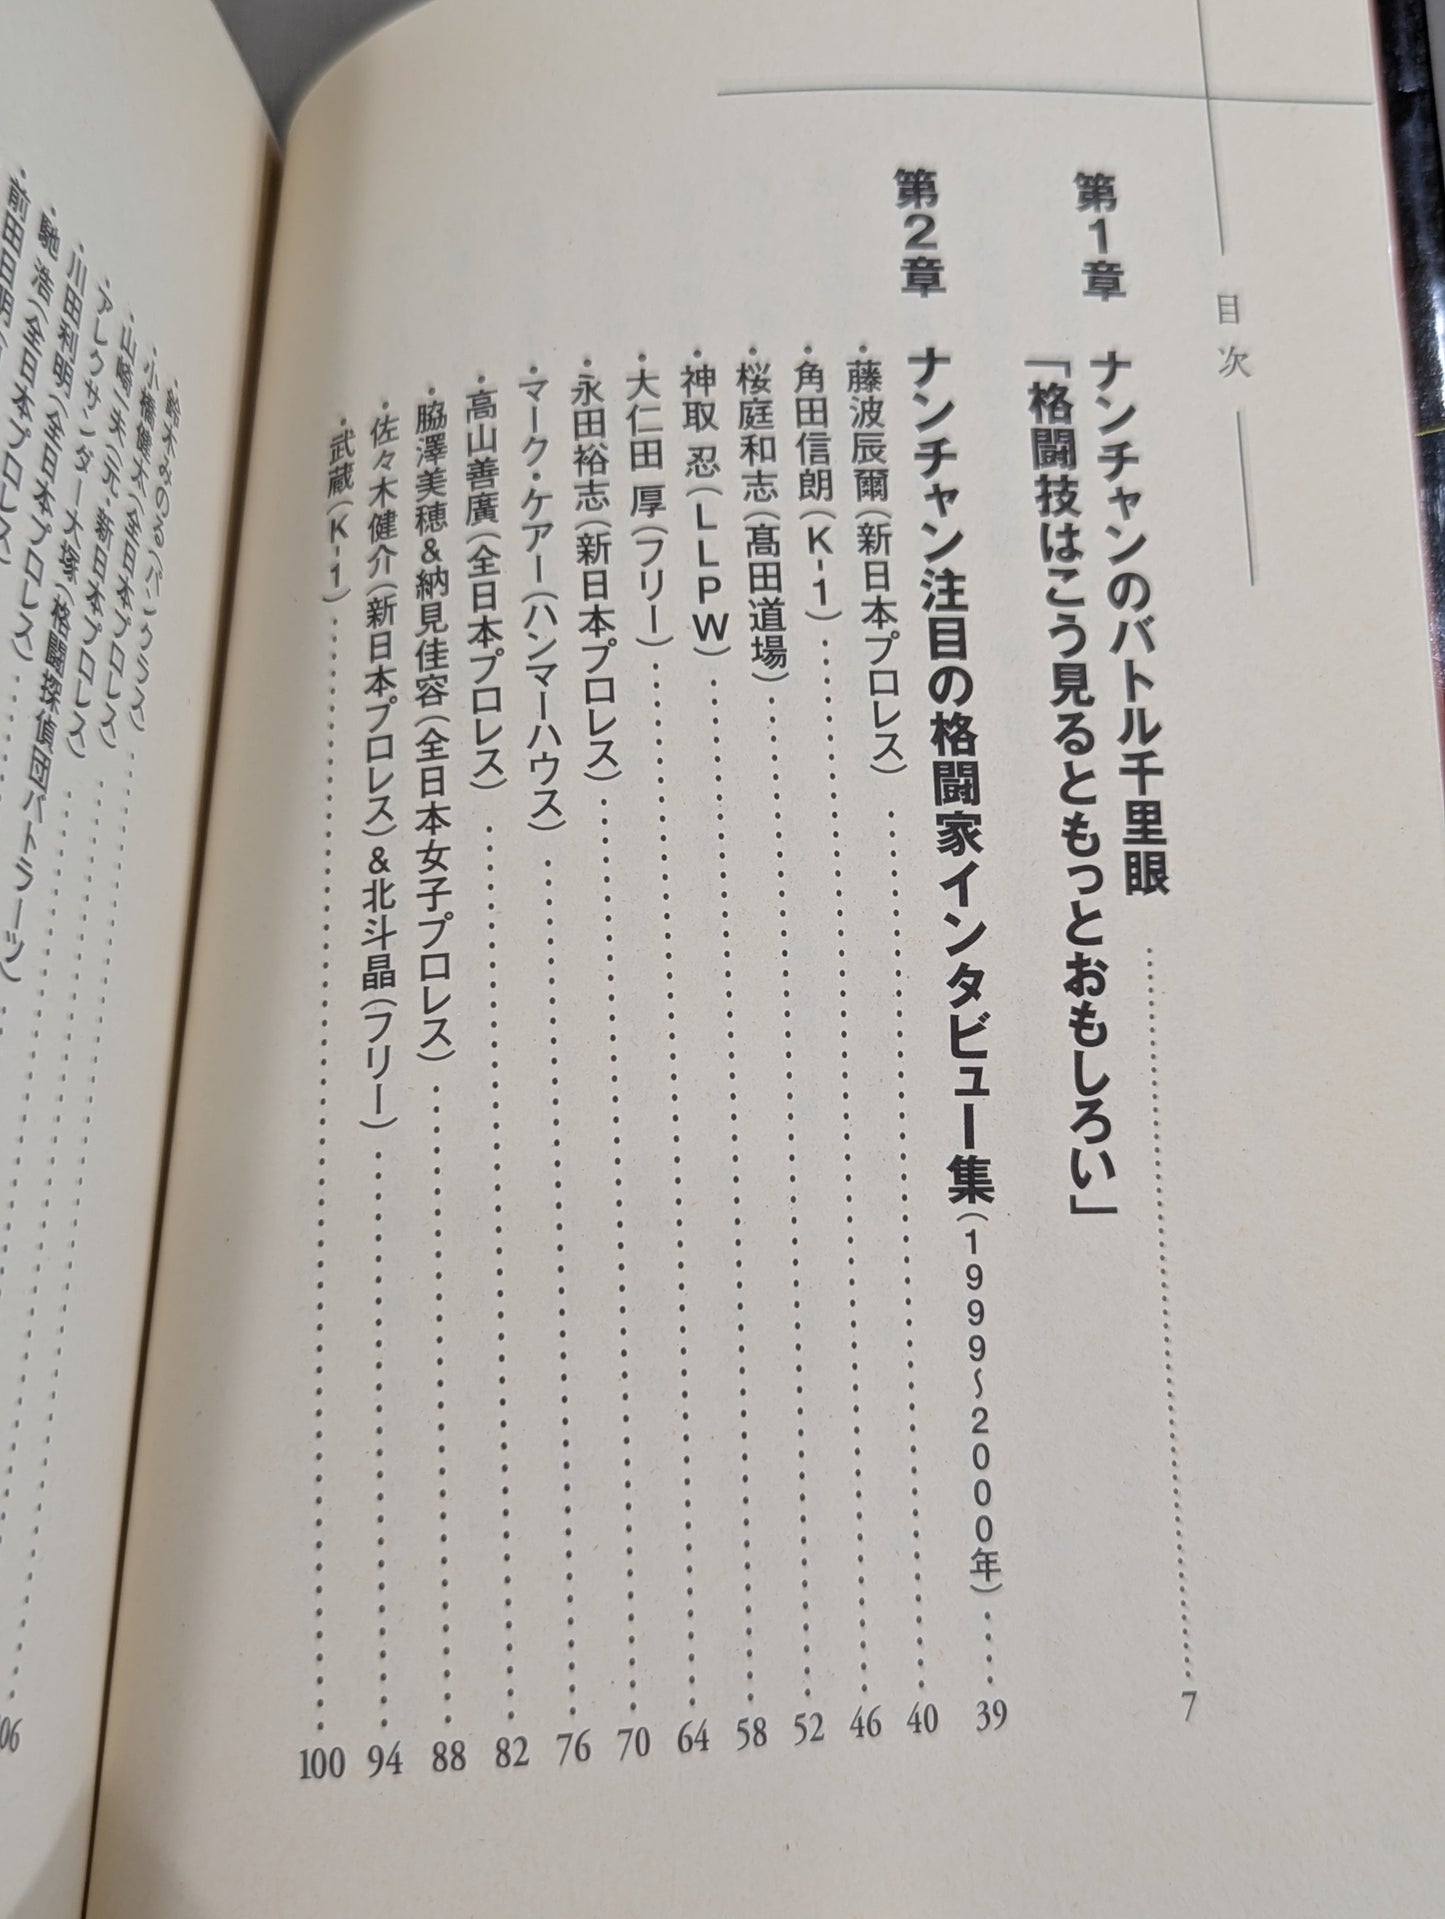 目次
第1章 ナンチャンのバトル千里眼……7
「格闘技はこう見るともっとおもしろい」
第2章 ナンチャン注目の格闘家インタビュー集(1999〜2000年)……39
・藤波辰爾(新日本プロレス)……40
・角田信朗(K-1)……46
・桜庭和志(髙田道場)……52
・神取 忍(LLPW)……58
・大仁田 厚(フリー)……64
・永田裕志(新日本プロレス)……70
・マーク・ケアー(ハンマーハウス)……76
・高山善廣(全日本プロレス)……82
・脇澤美穂&納見佳容(全日本女子プロレス)……88
・佐々木健介(新日本プロレス)&北斗晶(フリー)……94
・武蔵(K-1)……100
・鈴木みのる(パンクラス)……
・小橋健太(全日本プロレス)……
・山崎一夫(元・新日本プロレス)……
・アレクサンダー大塚(格闘探偵団バトラーツ)……
・川田利明(全日本プロレス)……
・馳 浩(全日本プロレス)……
・前田日明